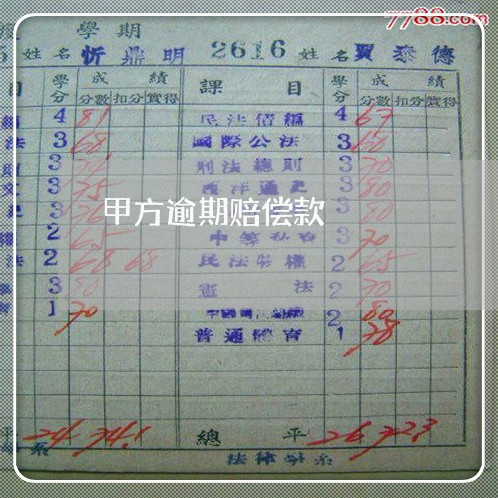 7788.com
學期
姓名 忻鼎明 2616 姓名 賈泰德
目 學分 成績 課目 學分 成績
分數 扣分 實得 分數 扣分 實得
4 81 民法債編 4 67
法 3 68 國際公法 3 60
3 刑法總則 3 70
3 75 西洋通史 3 80
3 3 80
甲方逾期赔偿款
2 65 3 70
法 2 68 68 民法物權 2 65
3 80 憲法 2 70
1 70 2 80
普通體育 1 78
平 24 74.1 總平 26 72.3
系 法律學系